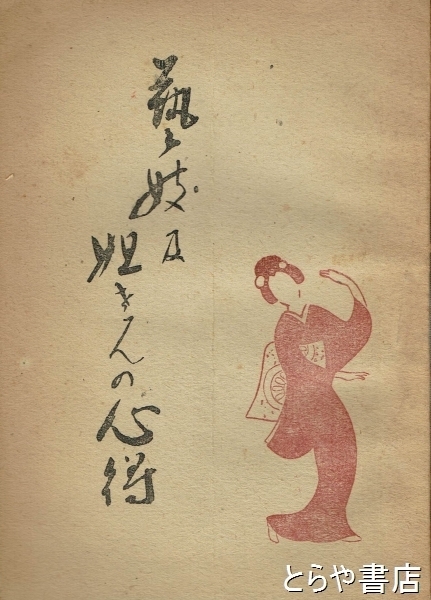 藝妓及
姐さんの心得
とらや書店